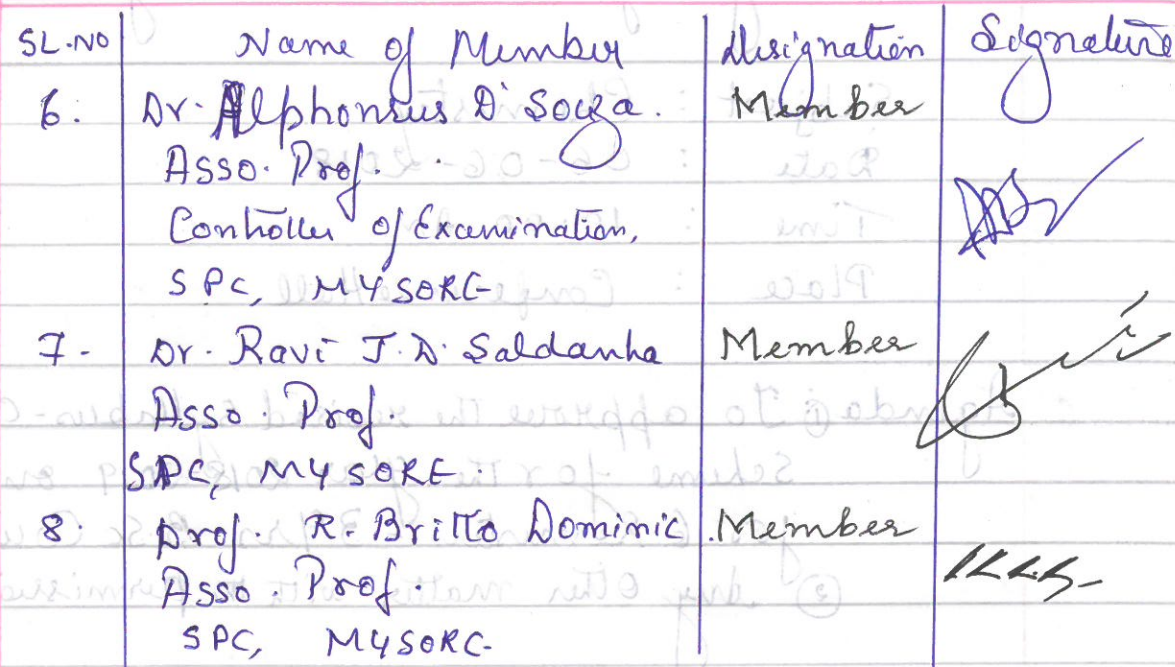 SL.NO Name of Member Designation Signature
6. Dr. Alphonsus D'Souza. Member
Asso. Prof.
Controller of Examination,
SPC, MYSORE
7. Dr. Ravi J.D. Saldanha Member
Asso. Prof.
SPC, MYSORE.
8. Prof. R. Britto Dominic. Member
Asso. Prof.
SPC, MYSORE